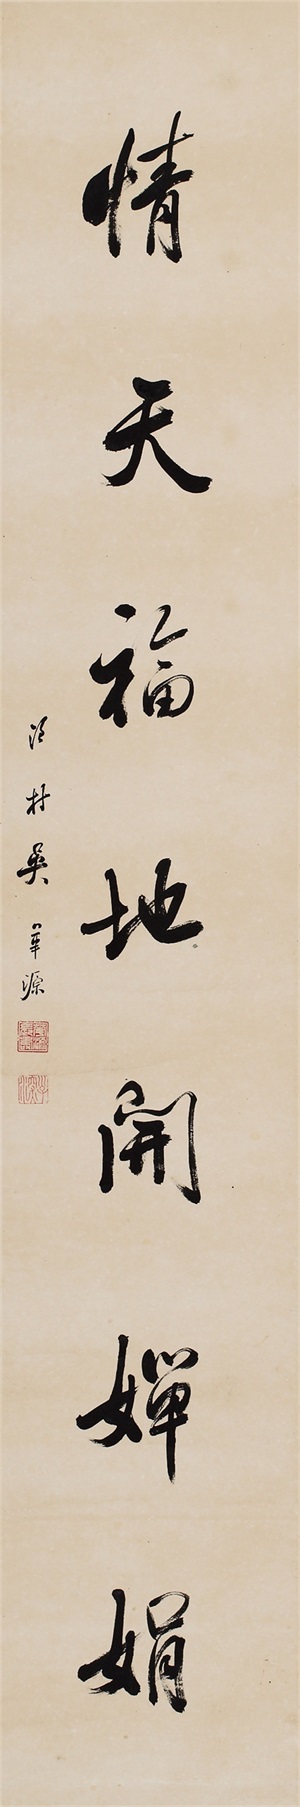 情天福地開嬋娟
漁村吳華源